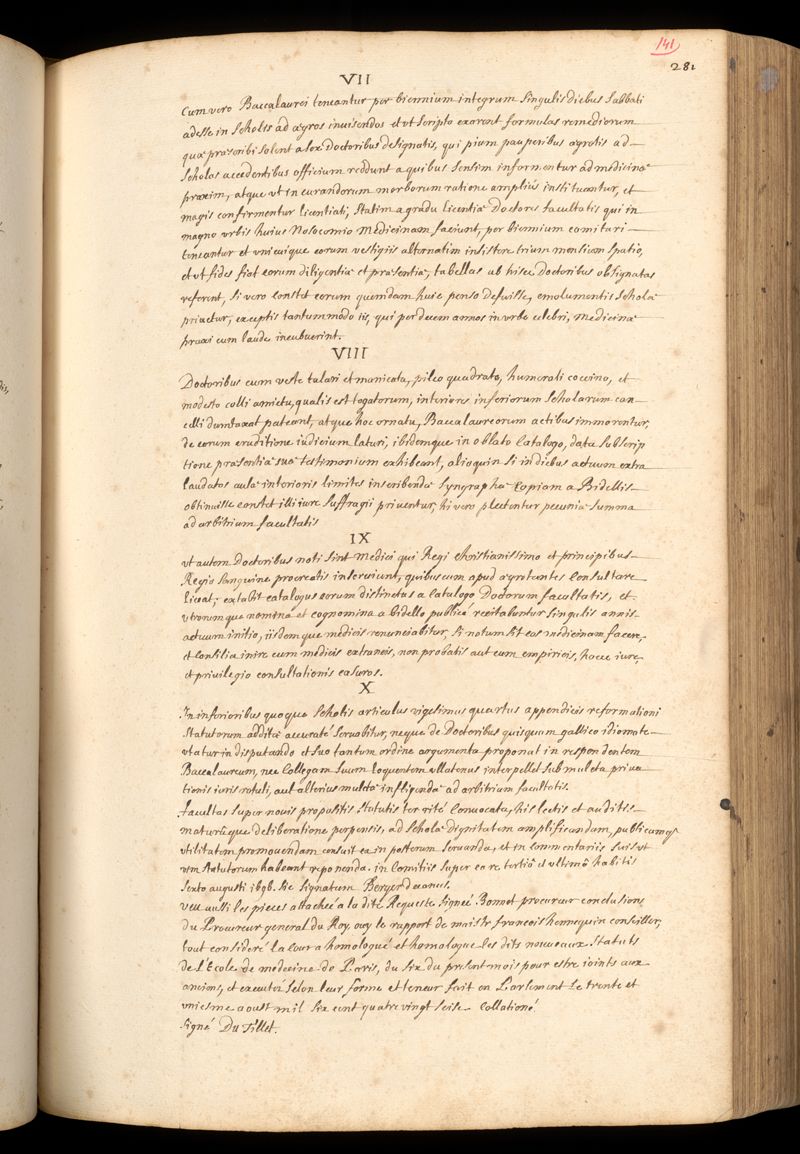 141
281
VII
Cum vero Baccalaurei teneantur per biennium integrum singulis diebus sabbati
adesse in scholis ad ægros invisendos et ut scripto exarent formulas remediorum
quæ præscribi solent a sex Doctoribus designatis, qui pium pauperibus ægrotis ad
scholas accedentibus officium reddunt a quibus sensim informentur ad medicinæ
praxim, atque ut in curandorum morborum ratione ampliùs instituantur, et
magis confirmentur licentiati, statim a gradu licentiæ Doctores facultatis qui in
magno urbis huius Nosocomio Medicinam faciunt, per biennium comitari
teneantur et unicuique eorum vestigiis alternatim insistere trium mensium spatio,
et ut fides fiat eorum diligentiæ et præsentiæ, tabellas ab hisce Doctoribus obsignatas
referent, si vero constet eorum quemdam huic penso defuisse, emolumentis scholæ
privetur, exceptis tantummodo iis, qui per decem annos in urbe celebri, Medicinæ
praxi cum laude incubuerint.
VIII
Doctoribus cum veste talari et manicata, pileo quadrato, humerali coccino, et
modesto colli amictu, qualis est togatorum, interiores inferiorum scholarum can
celli dumtaxat pateant, atque hoc ornatu, Baccalaureorum actibus immorentur,
de eorum eruditione iudicium laturi, ibidemque in oblato Catalogo, data subscrip
tione præsentiæ suæ testimonium exhibeant, alioquin si in diebus actuum extra
laudatos aulæ interioris limites inscribendæ syngraphæ copiam a Bidellis
obtinuisse constet illi iure suffragii priventur, hi vero plectentur pecuniæ summa
ad arbitrium facultatis
IX
ut autem Doctoribus noti sint Medici qui Regi christianissimo et principibus
Regio sanguine procreatis inserviunt, quibuscum apud ægrotantes consultare
liceat, extabit catalogus eorum distinctus a Catalogo Doctorum facultatis, et
utrorumque nomina et cognomina a bidello publicè recitabuntur singulis annis
actuum initio, iisdemque medicis renunciabitur, si notum sit eos medicinam facere,
et consilia inire cum medicis extraneis, non probatis aut cum empiricis, hocce iure,
et privilegio consultationis casuros.
X
In inferioribus quoque scholis articulus vigesimus quartus appendicis reformationi
statutorum additæ accuratè servabitur, neque de Doctoribus quisquam gallico idiomate
utatur in disputando et suo tantum ordine argumenta proponat in respondentem
Baccalaureum, nec Collegam suum loquentem ullatenus interpellet sub mulcta priva
tionis iuris rotuli, aut alterius mulctæ infligendæ ad arbitrium facultatis.
facultas super novis propositis statutis ter ritè convocata, his lectis et auditis
maturâque deliberatione perpensis, ad scholæ dignitatem amplificandam, publicamq;
utilitatem promovendam censuit ea in posterum servanda, et in commentariis suis ut
vim statutorum habeant reponenda. in comitiis super ea re tertiò et ultimò habitis
sexto augusti 1696. sic signatum Berger decanus.
veu aussi les pieces attachée a la dite Requeste signée Bonnet procureur conclusions
du Procureur general du Roy, ouy le rapport de maistr francois hennequin conseiller,
tout consideré la cour a homologué et homologue les dits nouveaux statuts
de l'Ecole de medecine de Paris, du six du present mois pour estre ioints aux
anciens, et executez selon leur forme et teneur fait en Parlement le trente et
uniesme aoust mil six cent quatre vingt seise. Collationé
signé Du Tillet.